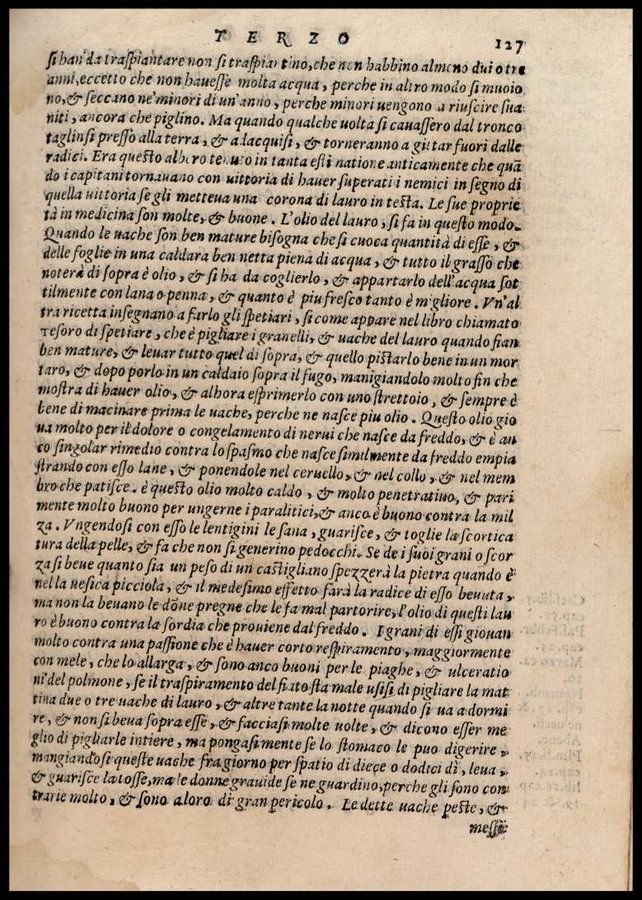 TERZO 127
si han da traspiantare non si traspiantino, che non habbino almeno dui o tre
anni, eccetto che non hauesse molta acqua, perche in altro modo si muoio
no, & seccano ne' minori di un'anno, perche minori uengono a riuscire sua
niti, ancora che piglino. Ma quando qualche uolta si cauassero dal tronco
taglinsi presso alla terra, & alacquisi, & torneranno a gittar fuori dalle
radici. Era questo albero tenuto in tanta estinatione anticamente che quã
do i capitani tornauano con uittoria di hauer superati i nemici in segno di
quella uittoria se gli metteua una corona di lauro in testa. Le sue proprie
tà in medicina son molte, & buone. L'olio del lauro, si fa in questo modo.
Quando le uache son ben mature bisogna che si cuoca quantità di esse, &
delle foglie in una caldara ben netta piena di acqua, & tutto il grasso che
noterà di sopra è olio, & si ha da coglierlo, & appartarlo dell'acqua sot
tilmente con lana o penna, & quanto è piu fresco tanto è migliore. Vn'al
tra ricetta insegnano a farlo gli spetiari, si come appare nel libro chiamato
Tesoro di spetiare, che è pigliare i granelli, & uache del lauro quando sian
ben mature, & leuar tutto quel di sopra, & quello pistarlo bene in un mor
taro, & dopo porlo in un caldaio sopra il fugo, manigiandolo molto fin che
mostra di hauer olio, & alhora esprimerlo con uno strettoio, & sempre è
bene di macinare prima le uache, perche ne nasce piu olio. Questo olio gio
ua molto per il dolore o congelamento di nerui che nasce da freddo, & è an
co singolar rimedio contra lo spasmo che nasce similmente da freddo empia
strando con esso lane, & ponendole nel ceruello, & nel collo, & nel mem
bro che patisce. è questo olio molto caldo, & molto penetratiuo, & pari
mente molto buono per ungerne i paralitici, & anco è buono contra la mil
za. Vngendosi con esso le lentigini le sana, guarisce, & toglie la scortica
tura della pelle, & fa che non si generino pedocchi. Se de i suoi grani o scor
za si beue quanto sia un peso di un castigliano spezzerà la pietra quando è
nella uesica picciola, & il medesimo effetto farà la radice di esso beuuta,
ma non la beuano le dõne pregne che le fa mal partorire, l'olio di questi lau
ro è buono contra la sordia che prouiene dal freddo. I grani di essi giouan
molto contra una passione che è hauer corto respiramento, maggiormente
con mele, che lo allarga, & sono anco buoni per le piaghe, & ulceratio
ni del polmone, se il traspiramento del fiato sta male usisi di pigliare la mat
tina due o tre uache di lauro, & altre tante la notte quando si ua a dormi
re, & non si beua sopra esse, & facciasi molte uolte, & dicono esser me
glio di pigliarle intiere, ma pongasi mente se lo stomaco le puo digerire,
mangiandosi queste uache fra giorno per spatio di diece o dodici dì, leua,
& guarisce la tosse, ma le donne grauide se ne guardino, perche gli sono con
trarie molto, & sono a loro di gran pericolo. Le dette uache peste, &
messe